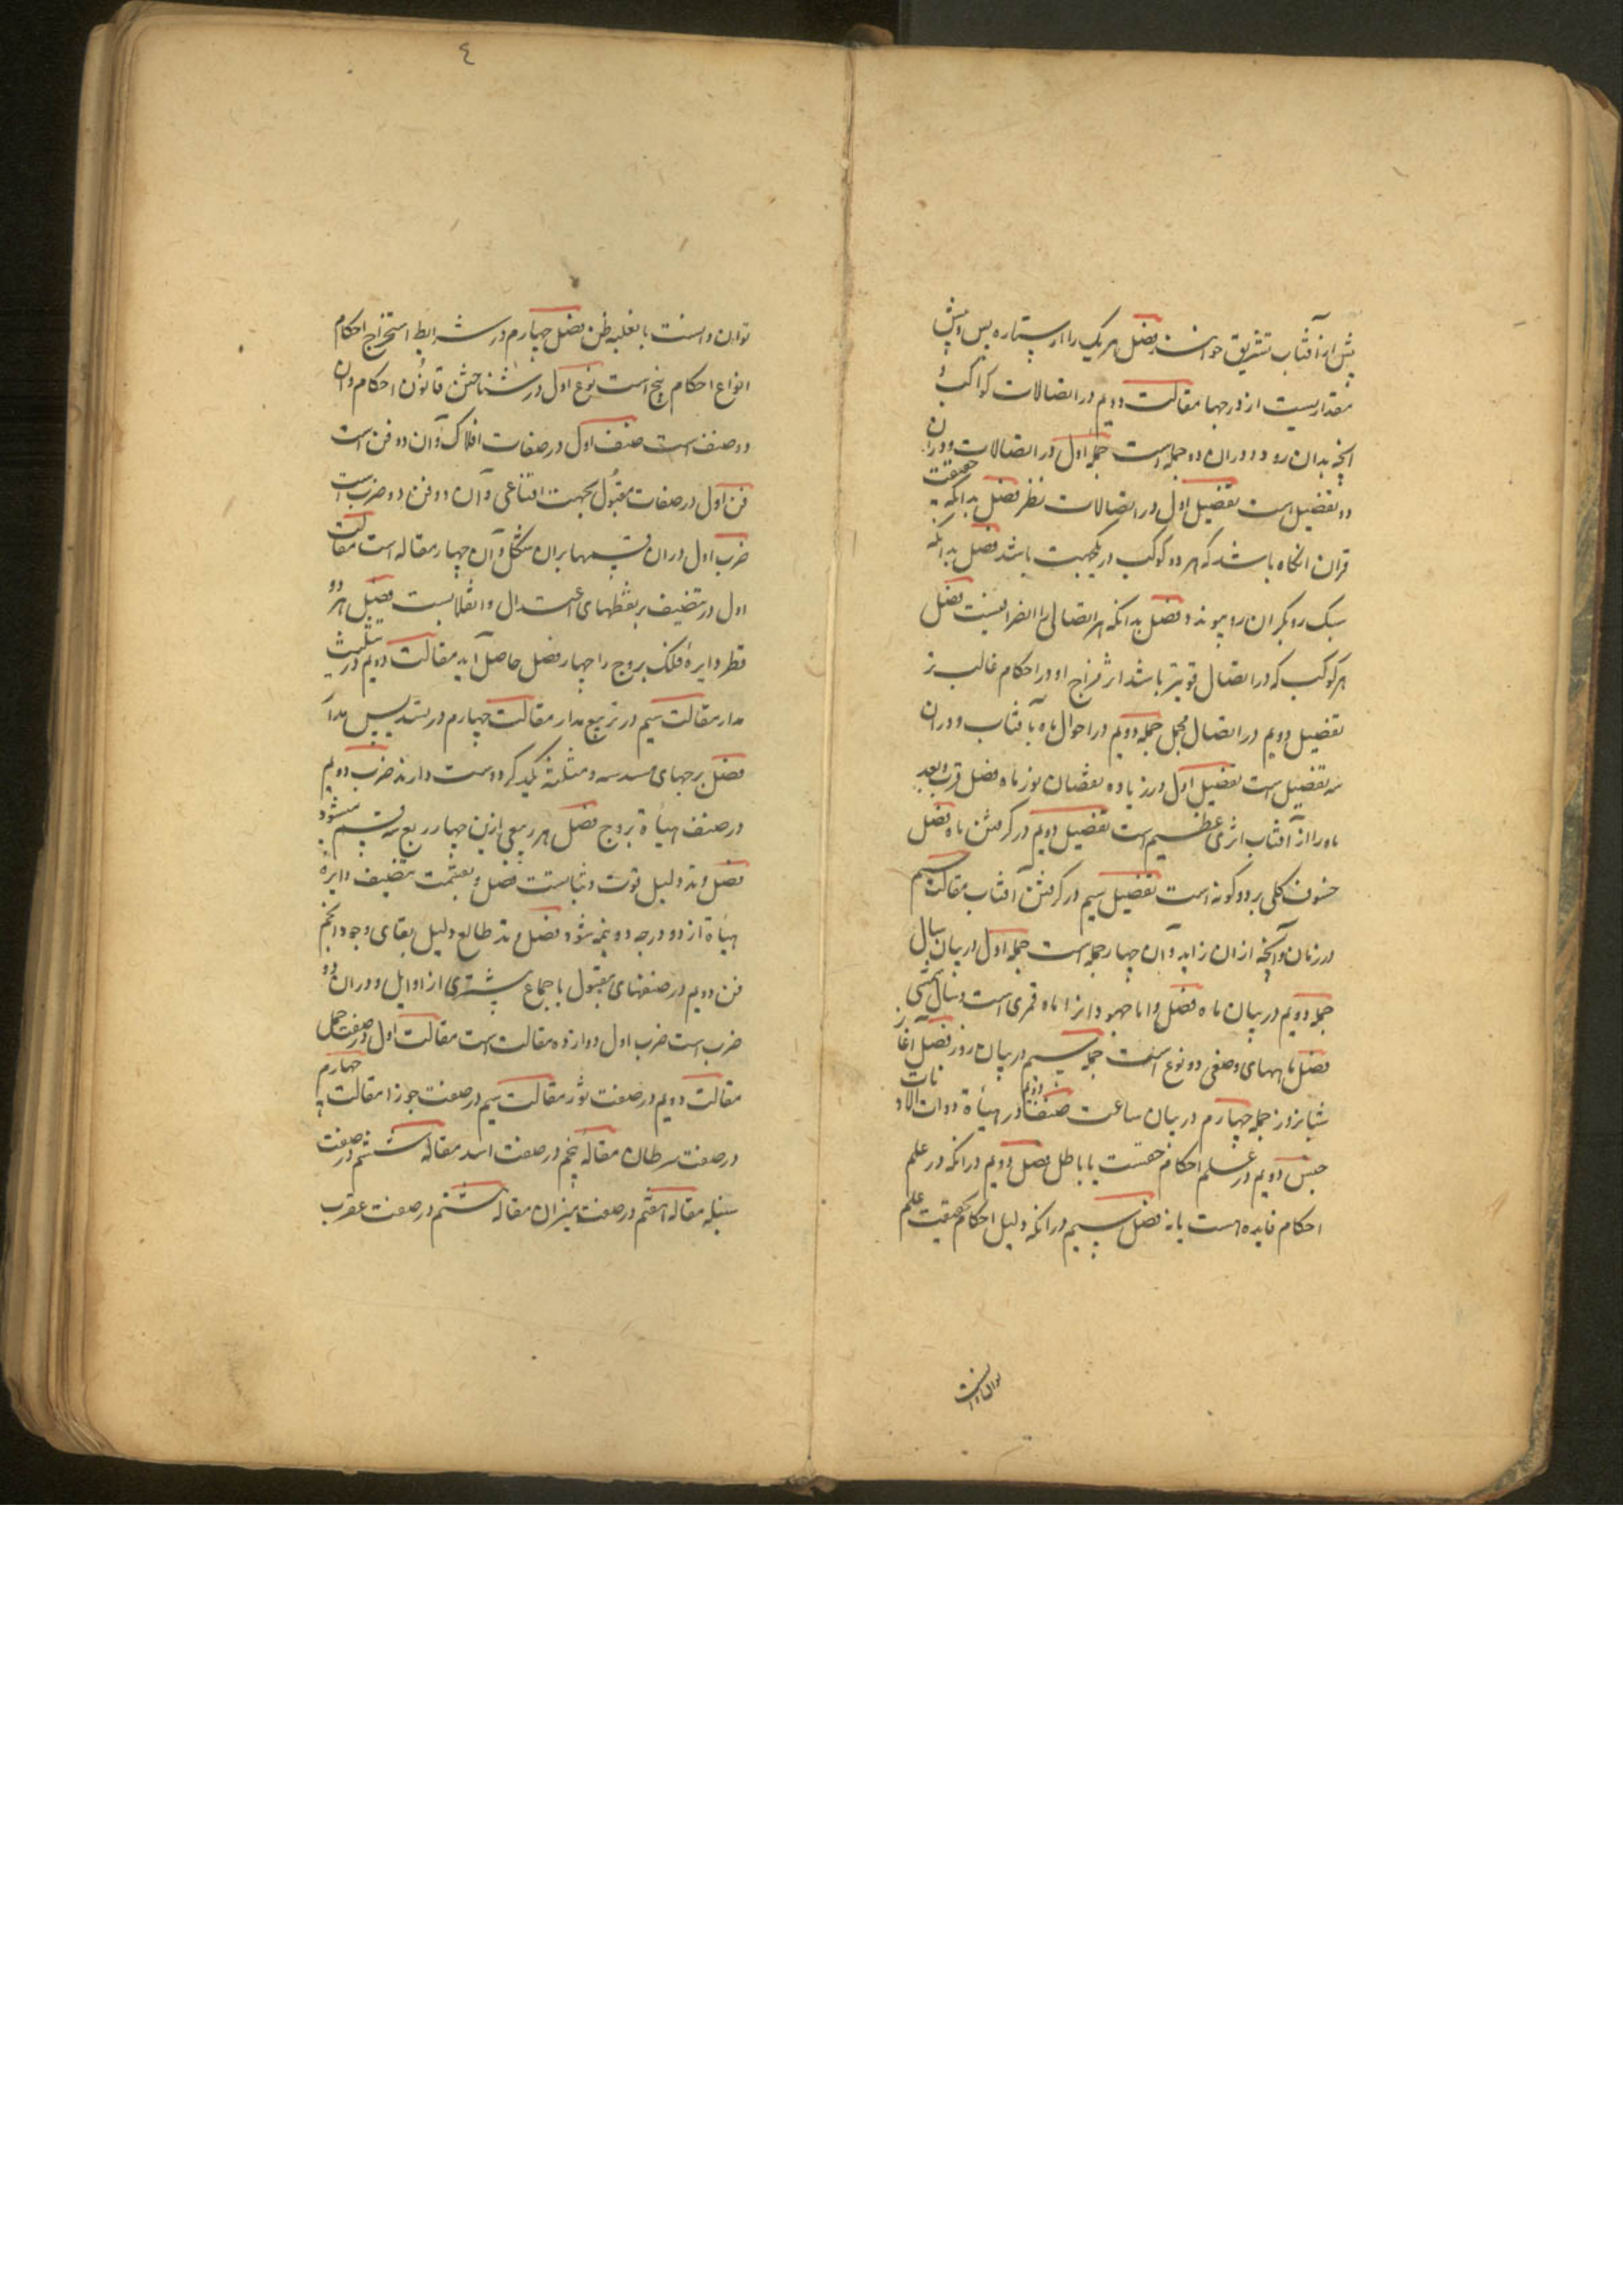 پیش از آفتاب تشریق خوانند فصل هر یک را از ستاره پس و پیش
مقداریست از درجها مقالت دویم در اتصالات کواکب و
آنچه بدان رود و در آن دو جمله است جمله اول در اتصالات و در آن
دو تفصیل است تفصیل اول در اتصالات نظر فصل بدانکه حقیقت
قران آنگاه باشد که هر دو کوکب در یک جهت باشد فصل بدانکه
سبک رو بگران رو پیوندد فصل بدانکه هر اتصالی را انصرافیست فصل
هر کوکب که در اتصال قویتر باشد اثر مزاج او در احکام غالب تر
تفصیل دویم در اتصال مجمل جمله دویم در احوال ماه با آفتاب و در آن
سه تفصیل است تفصیل اول در زیاده و نقصان نور ماه فصل قرب و بعد
ماه را از آفتاب اثری عظیم است تفصیل دویم در گرفتن ماه فصل
خسوف کلی بر دو گونه است تفصیل سیم در گرفتن آفتاب مقالت سیم
در زمان و آنچه از آن زاید و آن چهار جمله است جمله اول در بیان سال
جمله دویم در بیان ماه فصل و اما جهودانرا ماه قمری است و سال شمسی
فصل ماههای وضعی دو نوع است جمله سیم در بیان روز فصل آغاز
شبانروز جمله چهارم در بیان ساعت صنف دویم در هیأة ذوات الاذناب
جنس دویم در علم احکام حقست یا باطل فصل دویم در آنکه در علم
احکام فایده هست یا نه فصل سیم در آنکه دلیل احکام حقیقت علم
توان دانست
٤
توان دانست یا بغلبه ظن فصل چهارم در شرایط استخراج احکام
انواع احکام پنج است نوع اول در شناختن قانون احکام و آن
دو صنف است صنف اول در صفات افلاک و آن دو فن است
فن اول در صفات مقبول بجهت اقناعی و آن دو فن دو ضرب است
ضرب اول در آن قسمها بر آن شکل و آن چهار مقاله است مقالت
اول در تنصیف بر نقطهای اعتدال و انقلابست فصل هر دو
قطر دایره فلک بروج را چهار فصل حاصل آید مقالت دویم در تثلیث
مدار مقالت سیم در تربیع مدار مقالت چهارم در تسدیس مدار
فصل برجهای مسدسه و مثلثه یکدیگر دوست دارند ضرب دویم
در صنف هیأة بروج فصل هر ربعی ازین چهار ربع سه قسم میشود
فصل وتد دلیل قوت و ثباتست فصل و بقسمت تنصیف دایره
هیأة از دو درجه دو نیمه شود فصل وتد طالع دلیل بقای وجود انجم
فن دویم در صنفهای مقبول باجماع بیشتری از اوایل و در آن دو
ضرب است ضرب اول دوازده مقالت است مقالت اول در صفت حمل
مقالت دویم در صفت ثور مقالت سیم در صفت جوزا مقالت چهارم
در صفت سرطان مقاله پنجم در صفت اسد مقاله ششم در صفت
سنبله مقاله هفتم در صفت میزان مقاله هشتم در صفت عقرب